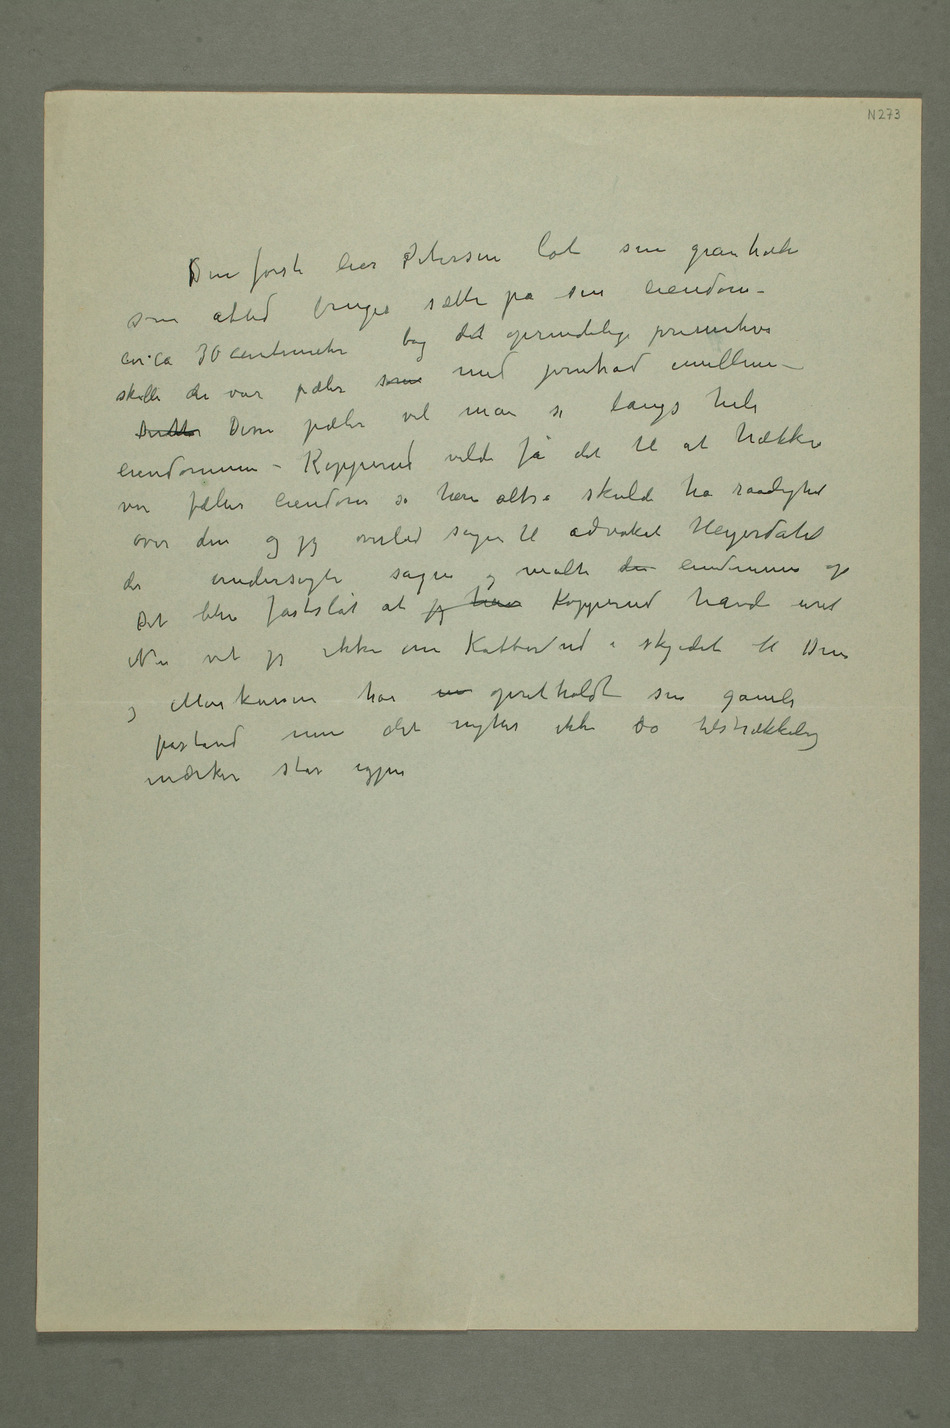 N 273
Den første eier Petersen lot sin granhæk
som altid bruges sætte på sin eiendom –
circa 30 centimeter bag det oprindelige primitive
skille der var pæler som med jerntråd imellem –
Dette Disse pæler vil man se langs hele
eiendommen – Kopperud vilde få det til at hækken
var fælles eiendom så han altså skulde ha raadighed
over den og jeg overlod sagen til advokat Heyerdahl
der undersøgte sagen og målte den eiendommen op
Det blev fastslåt at jeg have Kopperud havde uret
Nu vet jeg ikke om Kopperud i skjødet til Dem
og Markussen har opretholdt sin gamle
påstand men det nytter ikke Do tilstrækkelig
mærker står igjen